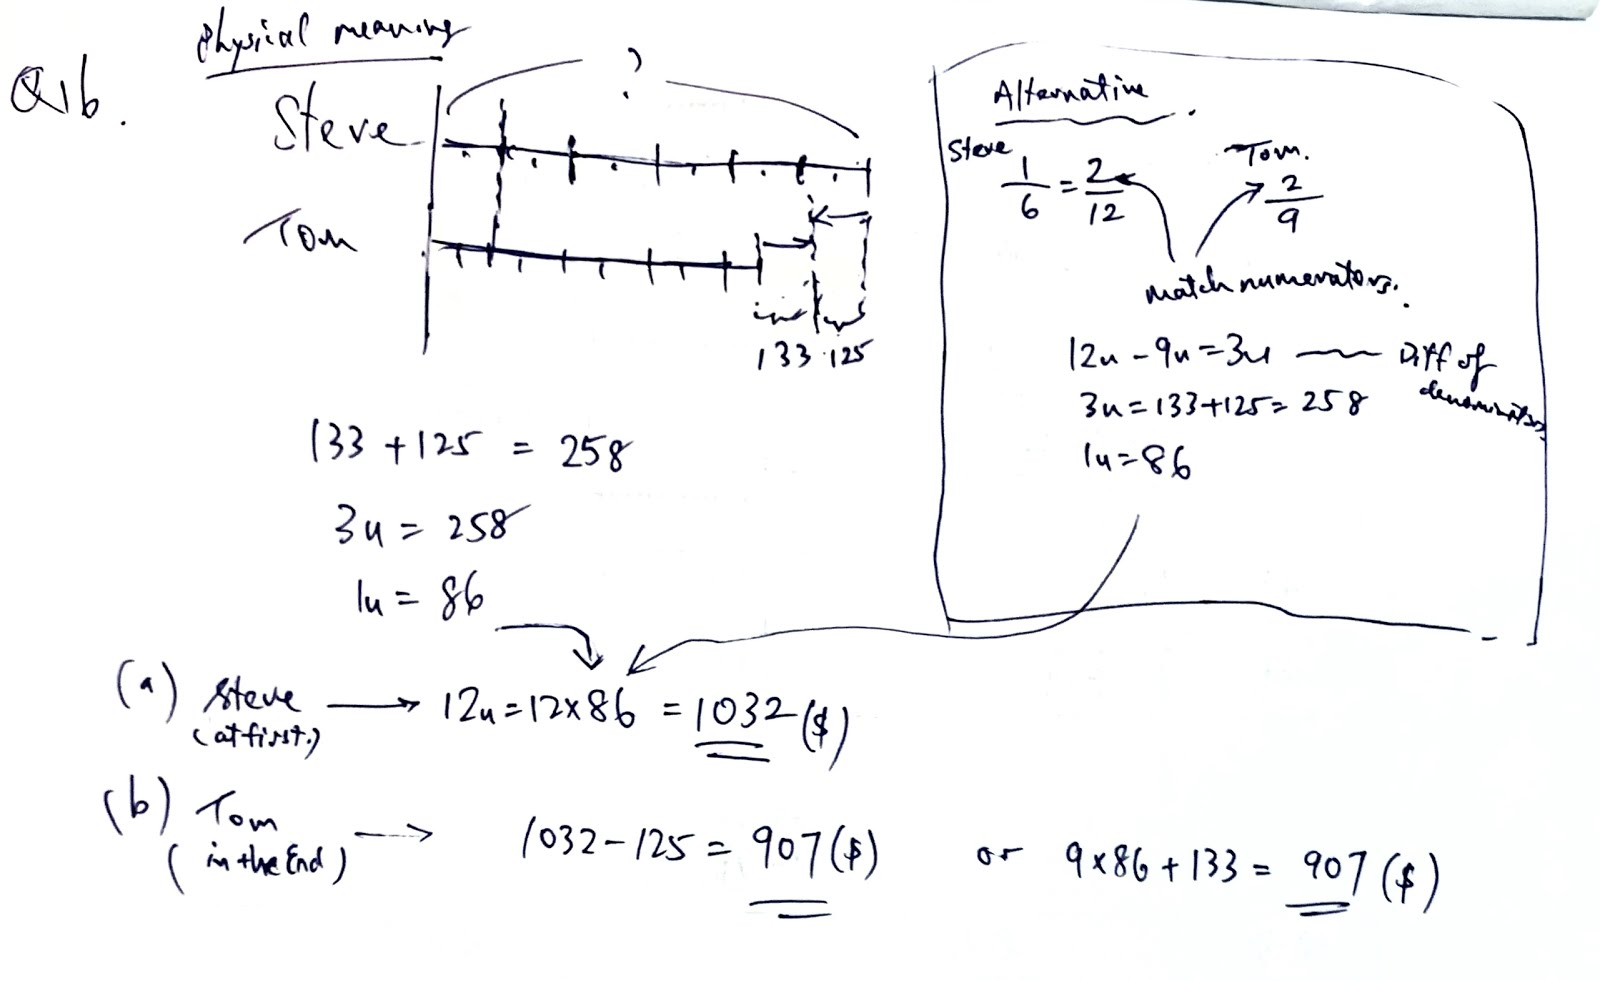 Q16.
physical meaning
Steve
?
Tom
133 125
133 + 125 = 258
3u = 258
1u = 86
Alternative.
Steve
1/6 = 2/12
Tom.
2/9
match numerators.
12u - 9u = 3u — Diff of denominators
3u = 133 + 125 = 258
1u = 86
(a) Steve → 12u = 12 x 86 = 1032 ($)
(at first.)
(b) Tom → 1032 - 125 = 907 ($) or 9 x 86 + 133 = 907 ($)
(in the End)